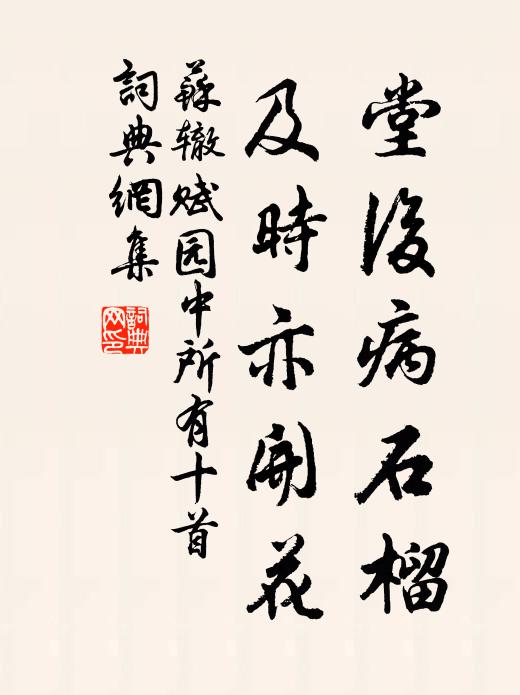 堂後病石榴
及時亦開花
蘇辙赋园中所有十首
詞典網集
詞典
网印